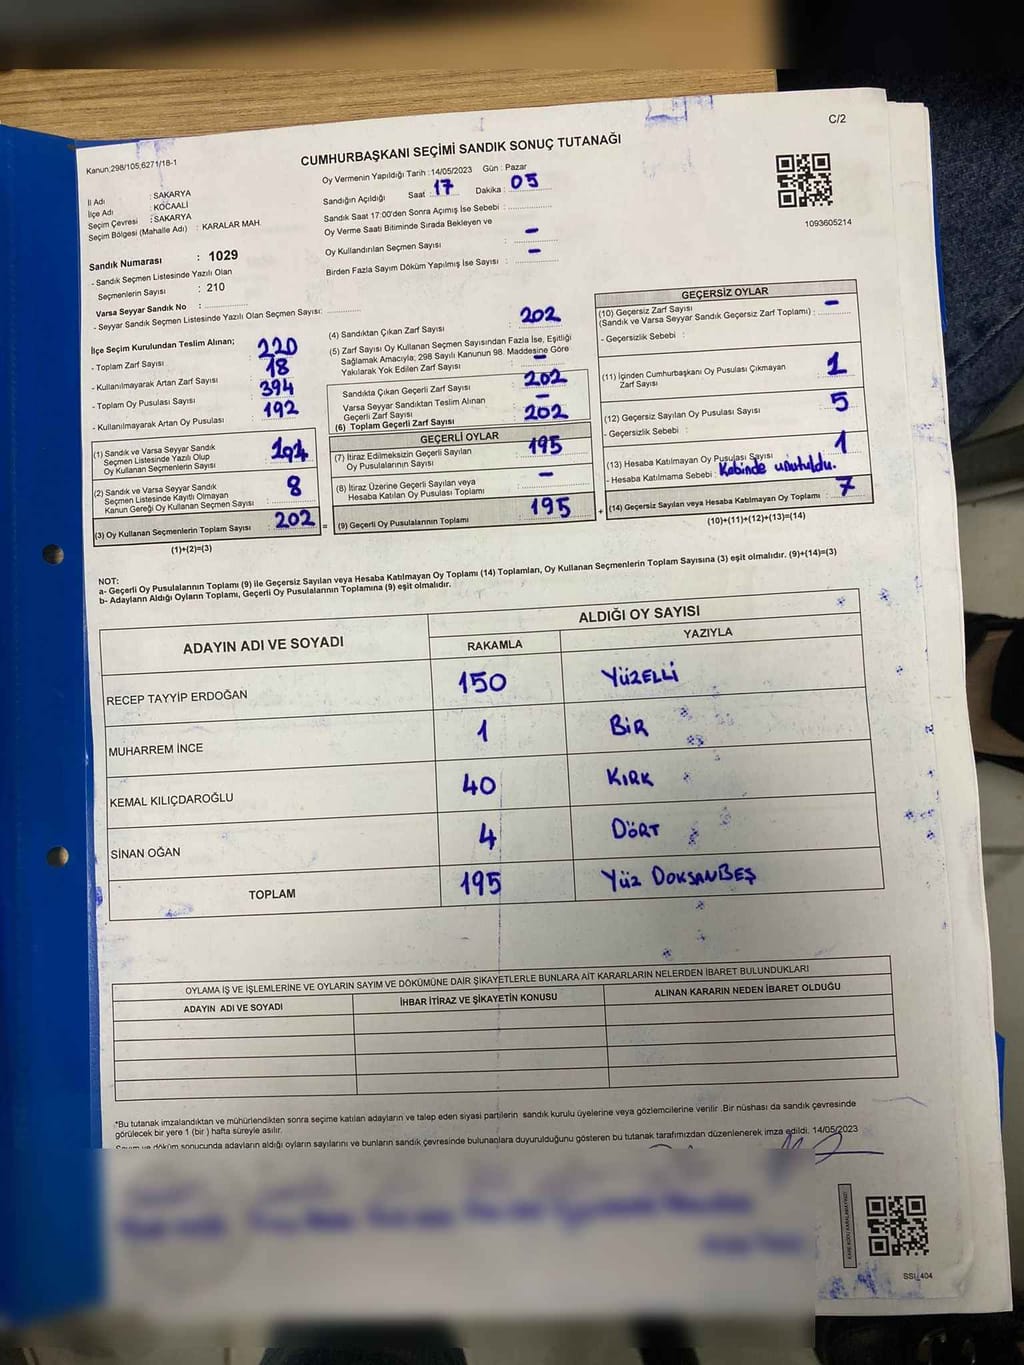 C/2
Kanun:298/105,6271/18-1
CUMHURBAŞKANI SEÇİMİ SANDIK SONUÇ TUTANAĞI
İl Adı : SAKARYA
İlçe Adı : KOCAALİ
Seçim Çevresi : SAKARYA
Seçim Bölgesi (Mahalle Adı) : KARALAR MAH.
Sandık Numarası : 1029
- Sandık Seçmen Listesinde Yazılı Olan
Seçmenlerin Sayısı : 210
Varsa Seyyar Sandık No :
- Seyyar Sandık Seçmen Listesinde Yazılı Olan Seçmen Sayısı:
Oy Vermenin Yapıldığı Tarih : 14/05/2023 Gün : Pazar
Sandığın Açıldığı Saat : 17 Dakika : 05
Sandık Saat 17:00'den Sonra Açımış İse Sebebi :
Oy Verme Saati Bitiminde Sırada Bekleyen ve
Oy Kullandırılan Seçmen Sayısı : -
Birden Fazla Sayım Döküm Yapılmış İse Sayısı : -
1093605214
İlçe Seçim Kurulundan Teslim Alınan;
- Toplam Zarf Sayısı : 220
- Kullanılmayarak Artan Zarf Sayısı : 18
- Toplam Oy Pusulası Sayısı : 394
- Kullanılmayarak Artan Oy Pusulası : 192
(1) Sandık ve Varsa Seyyar Sandık
Seçmen Listesinde Yazılı Olup
Oy Kullanan Seçmenlerin Sayısı : 194
(2) Sandık ve Varsa Seyyar Sandık
Seçmen Listesinde Kayıtlı Olmayan
Kanun Gereği Oy Kullanan Seçmen Sayısı : 8
(3) Oy Kullanan Seçmenlerin Toplam Sayısı : 202 =
(1)+(2)=(3)
(4) Sandıktan Çıkan Zarf Sayısı : 202
(5) Zarf Sayısı Oy Kullanan Seçmen Sayısından Fazla İse, Eşitliği
Sağlamak Amacıyla; 298 Sayılı Kanunun 98. Maddesine Göre
Yakılarak Yok Edilen Zarf Sayısı : -
Sandıkta Çıkan Geçerli Zarf Sayısı : 202
Varsa Seyyar Sandıktan Teslim Alınan
Geçerli Zarf Sayısı : -
(6) Toplam Geçerli Zarf Sayısı : 202
GEÇERLİ OYLAR
(7) İtiraz Edilmeksizin Geçerli Sayılan
Oy Pusulalarının Sayısı : 195
(8) İtiraz Üzerine Geçerli Sayılan veya
Hesaba Katılan Oy Pusulası Toplamı : -
(9) Geçerli Oy Pusulalarının Toplamı : 195 +
GEÇERSİZ OYLAR
(10) Geçersiz Zarf Sayısı
(Sandık ve Varsa Seyyar Sandık Geçersiz Zarf Toplamı) : -
- Geçersizlik Sebebi :
(11) İçinden Cumhurbaşkanı Oy Pusulası Çıkmayan
Zarf Sayısı : 1
(12) Geçersiz Sayılan Oy Pusulası Sayısı : 5
- Geçersizlik Sebebi :
(13) Hesaba Katılmayan Oy Pusulası Sayısı : 1
- Hesaba Katılmama Sebebi : Kabinde unutuldu.
(14) Geçersiz Sayılan veya Hesaba Katılmayan Oy Toplamı : 7
(10)+(11)+(12)+(13)=(14)
NOT:
a- Geçerli Oy Pusulalarının Toplamı (9) ile Geçersiz Sayılan veya Hesaba Katılmayan Oy Toplamı (14) Toplamları, Oy Kullanan Seçmenlerin Toplam Sayısına (3) eşit olmalıdır. (9)+(14)=(3)
b- Adayların Aldığı Oyların Toplamı, Geçerli Oy Pusulalarının Toplamına (9) eşit olmalıdır.
ADAYIN ADI VE SOYADI
ALDIĞI OY SAYISI
RAKAMLA YAZIYLA
RECEP TAYYİP ERDOĞAN 150 YÜZELLİ
MUHARREM İNCE 1 BİR
KEMAL KILIÇDAROĞLU 40 KIRK
SİNAN OĞAN 4 DÖRT
TOPLAM 195 YÜZ DOKSANBEŞ
OYLAMA İŞ VE İŞLEMLERİNE VE OYLARIN SAYIM VE DÖKÜMÜNE DAİR ŞİKAYETLERLE BUNLARA AİT KARARLARIN NELERDEN İBARET BULUNDUKLARI
ADAYIN ADI VE SOYADI İHBAR İTİRAZ VE ŞİKAYETİN KONUSU ALINAN KARARIN NEDEN İBARET OLDUĞU
*Bu tutanak imzalandıktan ve mühürlendikten sonra seçime katılan adayların ve talep eden siyasi partilerin sandık kurulu üyelerine veya gözlemcilerine verilir .Bir nüshası da sandık çevresinde
görülecek bir yere 1 (bir ) hafta süreyle asılır.
Sayım ve döküm sonucunda adayların aldığı oyların sayılarını ve bunların sandık çevresinde bulunanlara duyurulduğunu gösteren bu tutanak tarafımızdan düzenlenerek imza edildi. 14/05/2023
KARE KODU KARALAMAYINIZ!
SSI_404